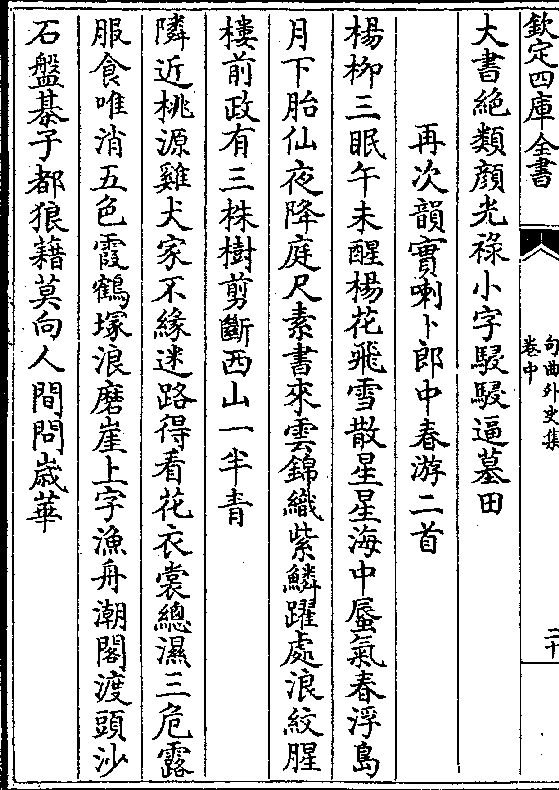 欽定四庫全書
句曲外史集
卷中
二十
大書絕類顔光祿小字駸駸逼墓田
再次韻實喇卜郎中春游二首
楊柳三眠午未醒楊花飛雪散星星海中蜃氣春浮島
月下胎仙夜降庭尺素書來雲錦織紫鱗躍處浪紋腥
樓前政有三株樹剪斷西山一半青
隣近桃源雞犬家不緣迷路得看花衣裳總濕三危露
服食唯消五色霞鶴塚浪磨崖上字漁舟潮閣渡頭沙
石盤棊子都狼藉莫向人間問嵗華